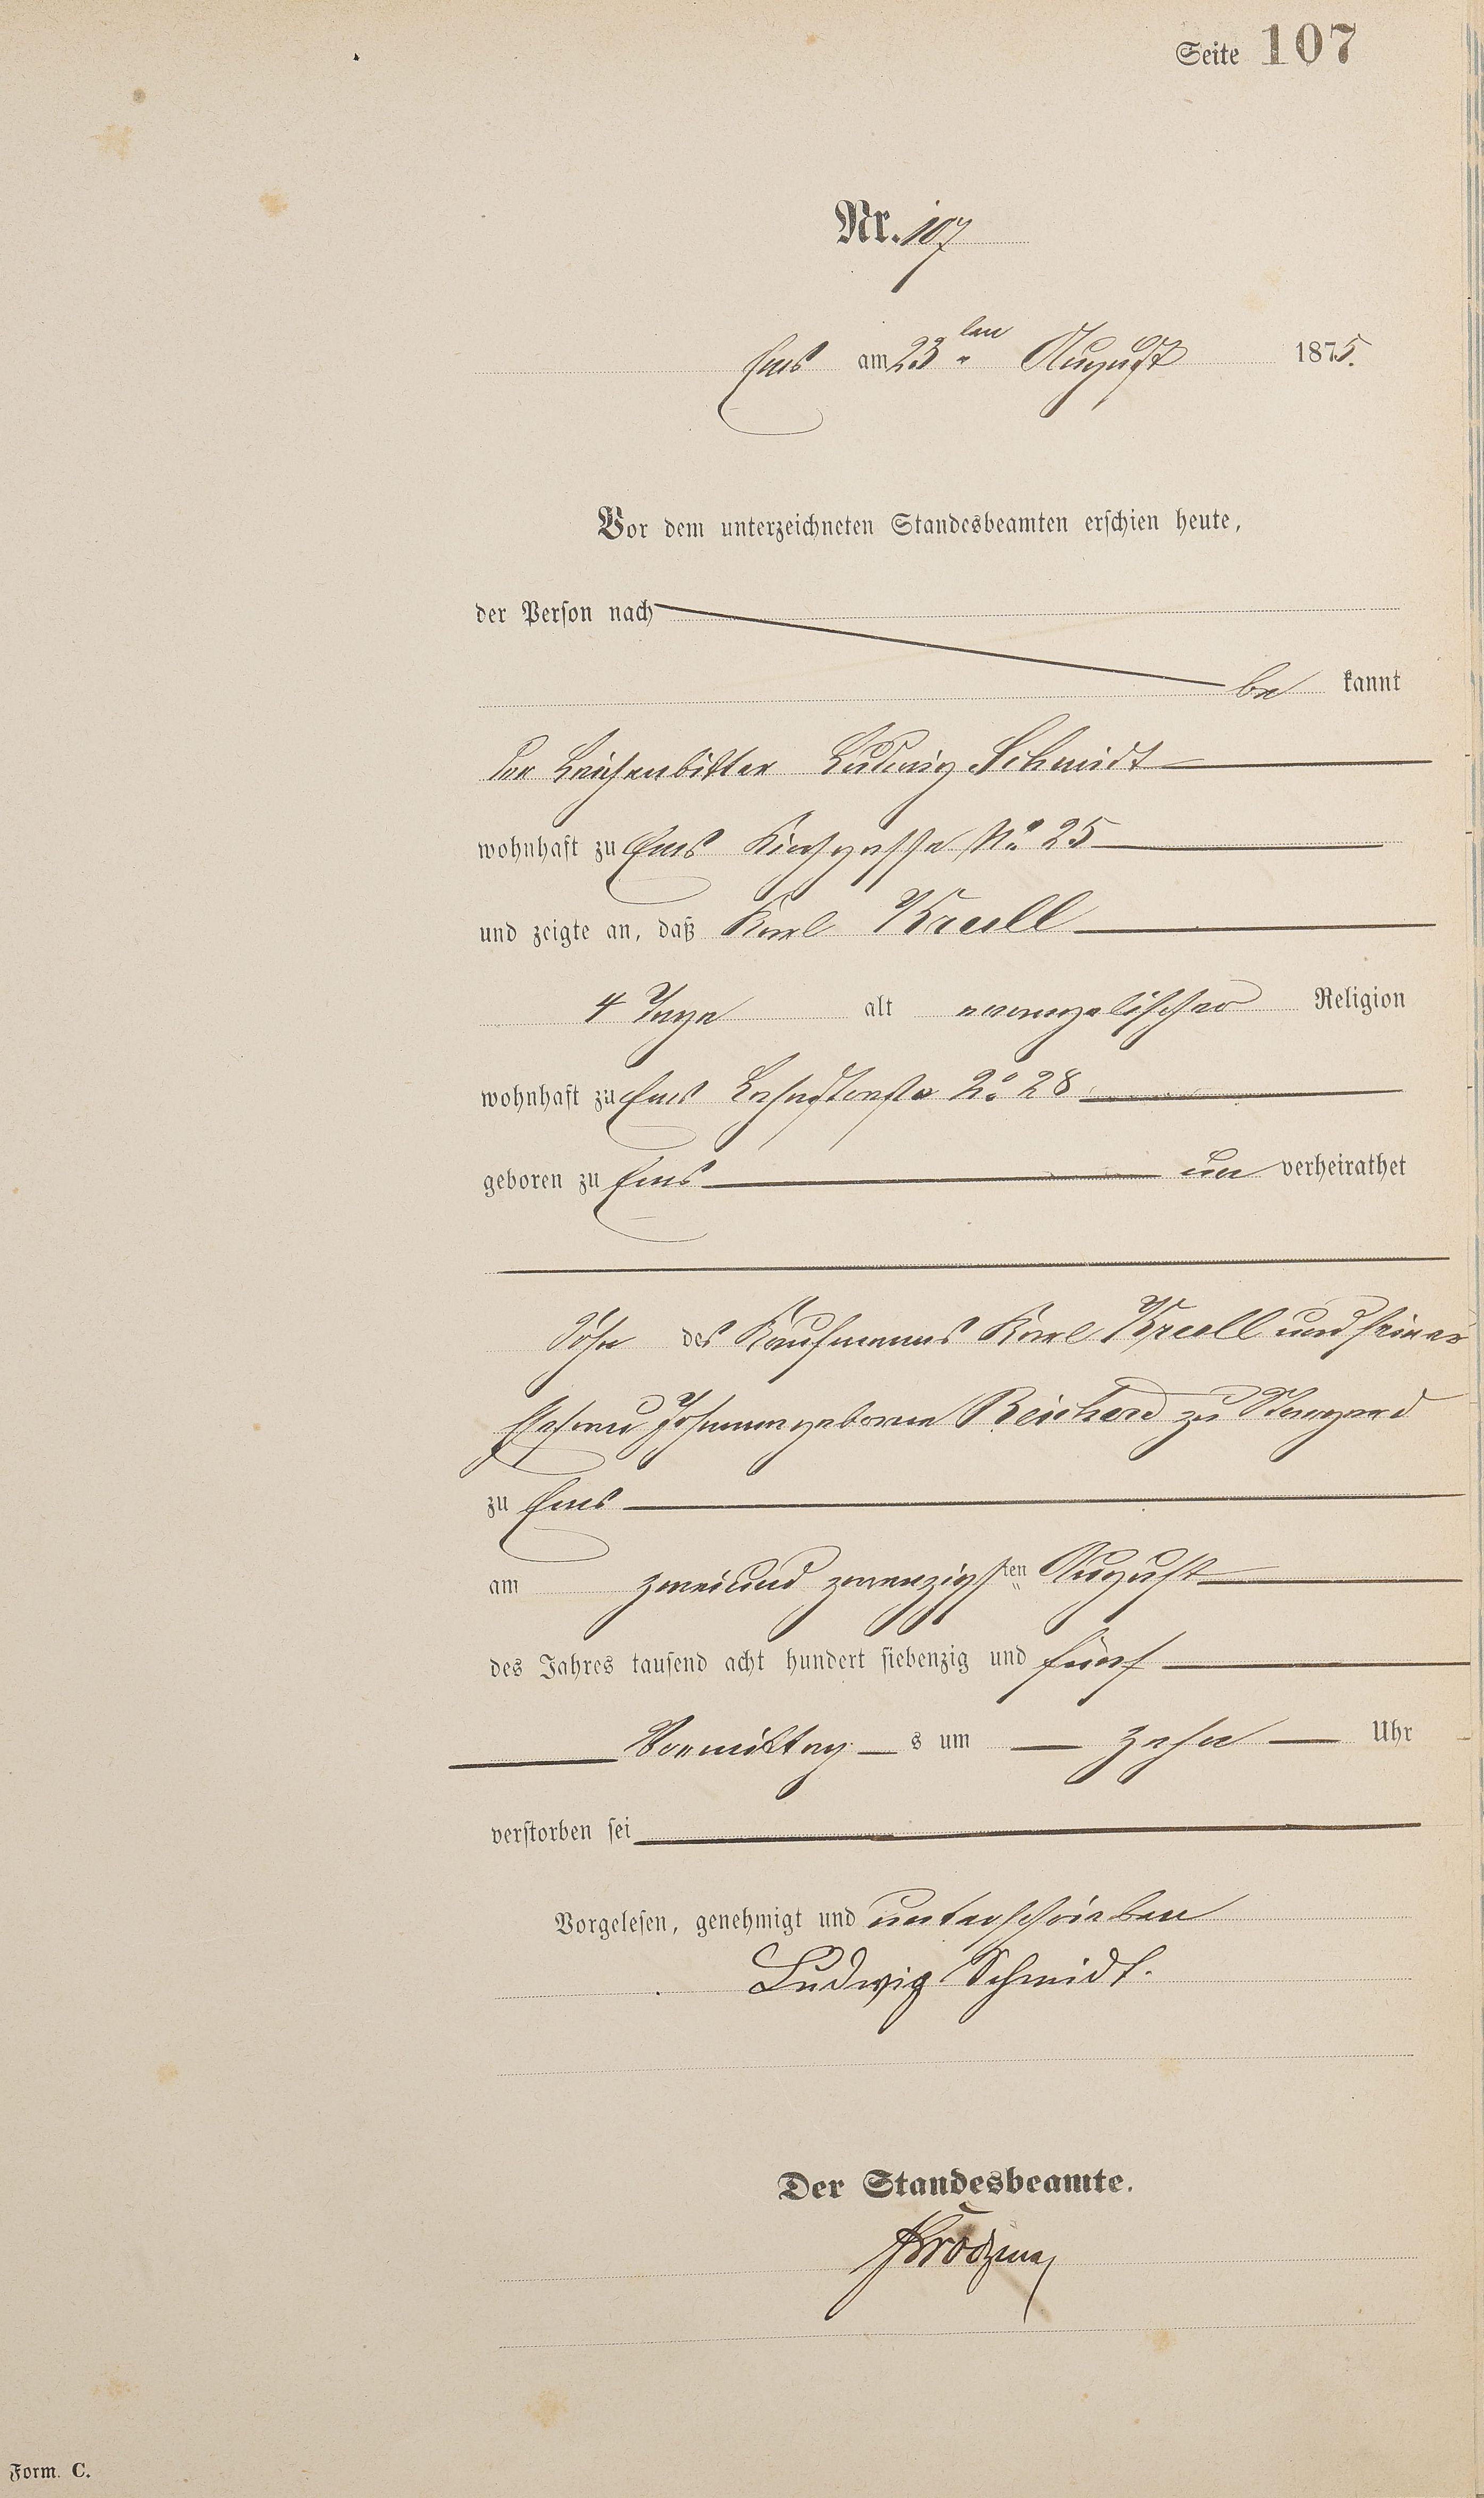 Seite 107
Nr. 107
Ems am 23ten August 1875.
Vor dem unterzeichneten Standesbeamten erschien heute,
der Person nach
be kannt
der Leichenbitter Ludwig Schmidt
wohnhaft zu Ems Kirchgasse No. 25
und zeigte an, daß Karl Krell
4 Tage alt evangelischer Religion
wohnhaft zu Ems No. 28
geboren zu Ems un verheirathet
Sohn des Kaufmanns Karl Krell und seiner
Ehefrau Johanna geborene Reichard zu
zu Ems
am zweiund zwanzigsten August
des Jahres tausend acht hundert siebenzig und fünf
Vormittag s um zehn Uhr
verstorben sei
Vorgelesen, genehmigt und unterschrieben
Ludwig Schmidt.
Der Standesbeamte.
Form. C.